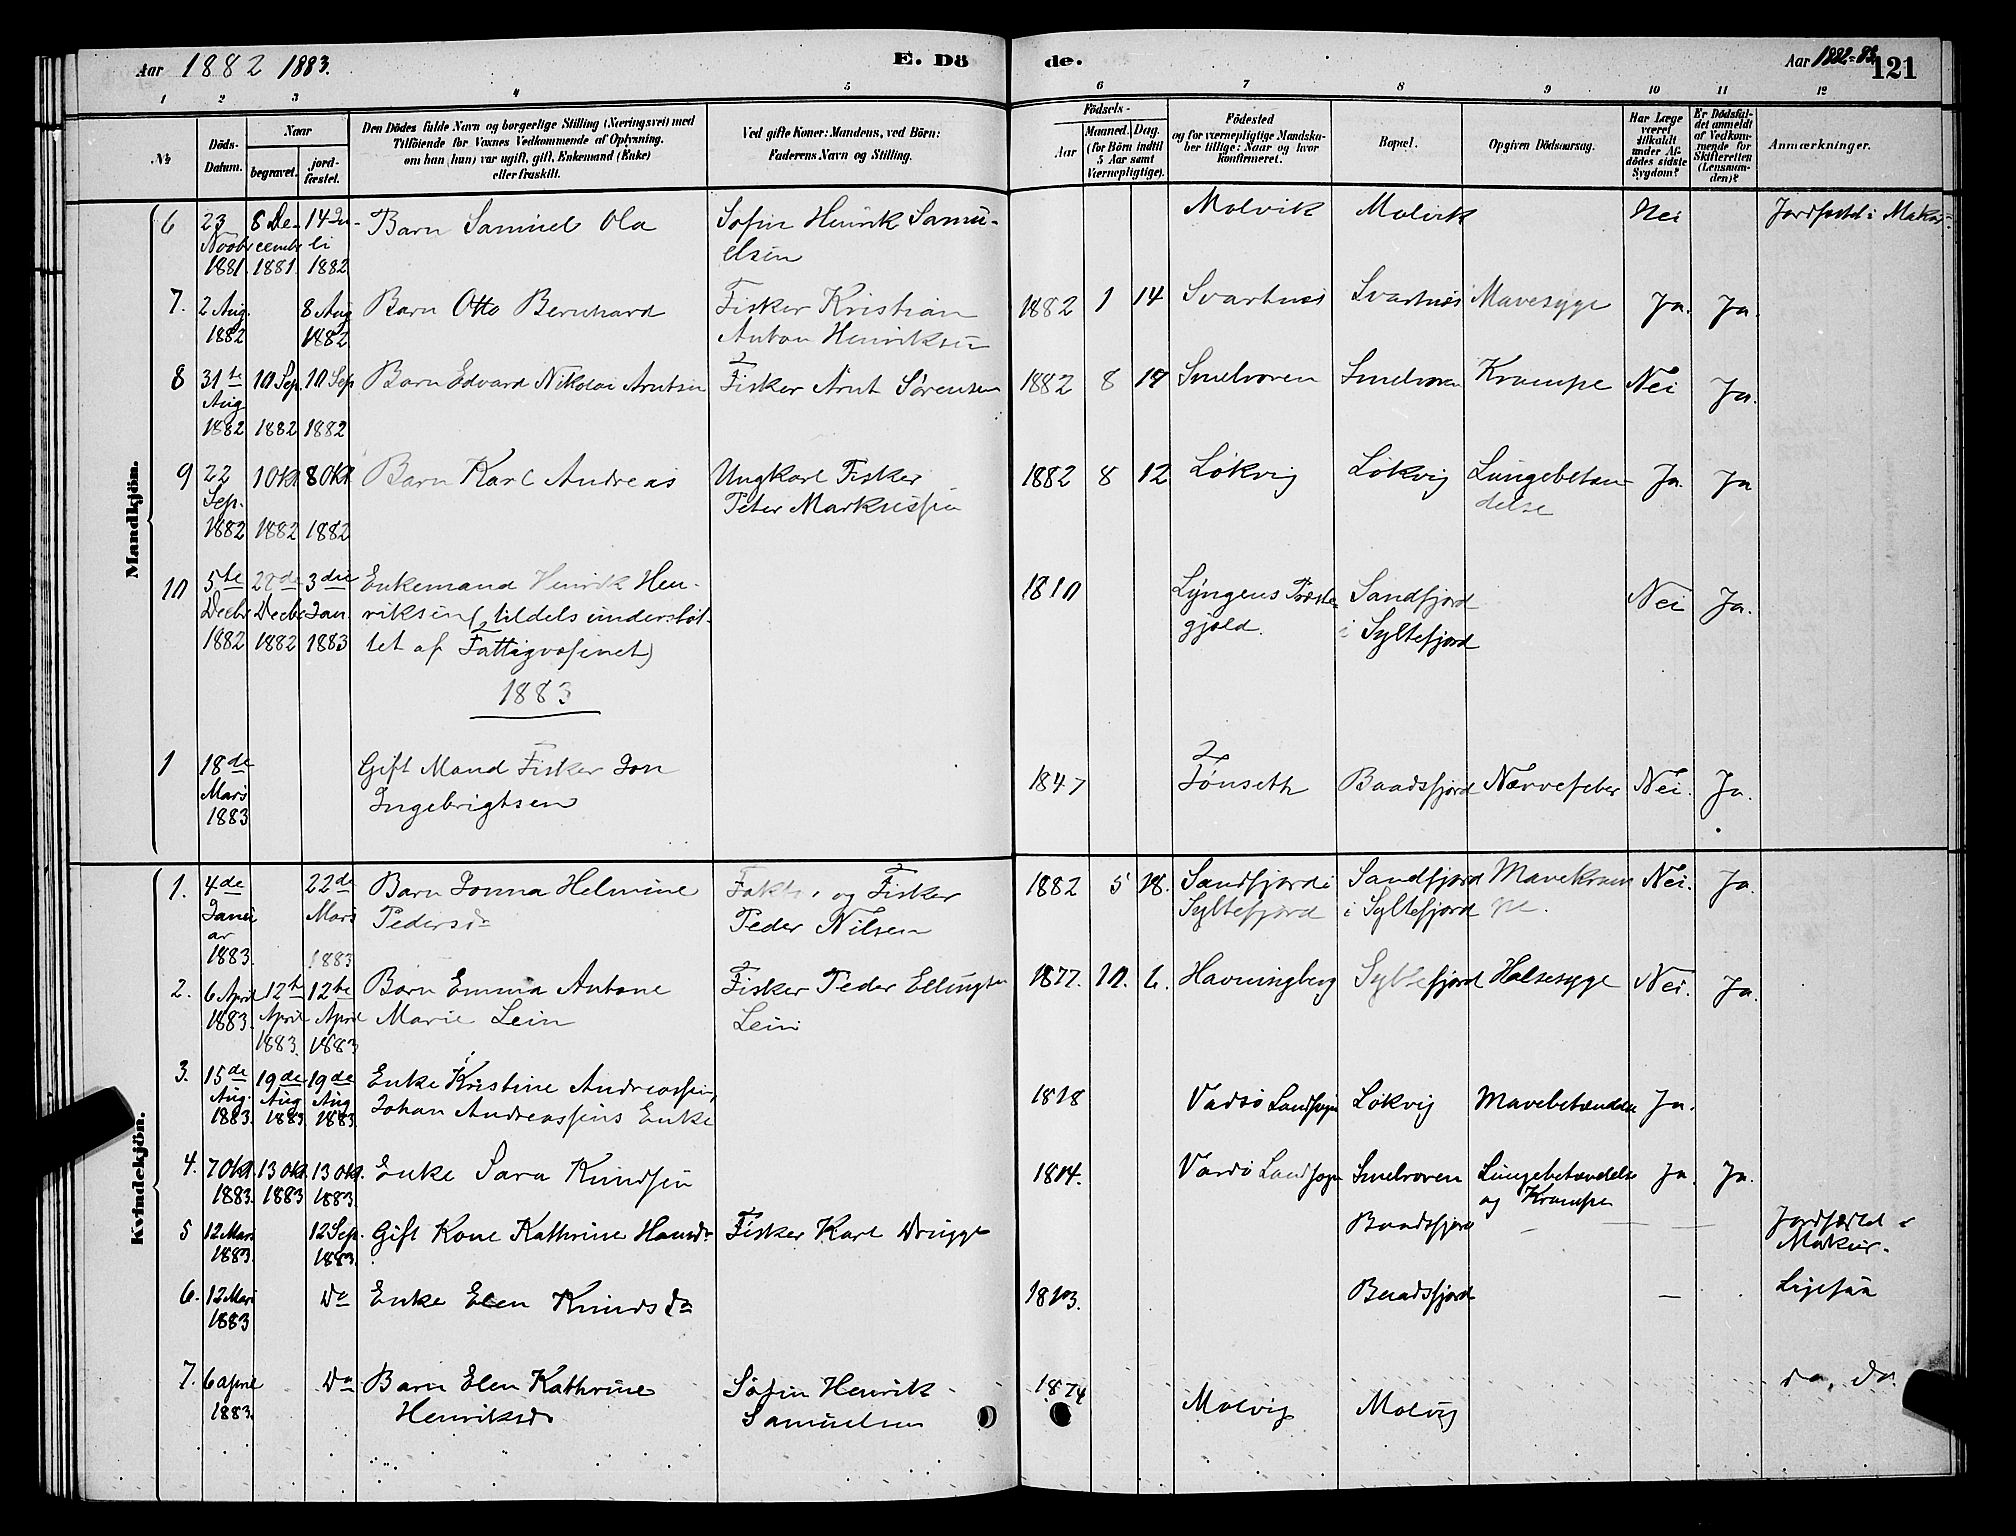 Aar 1882 1883.
E. Dö
de.
Aar 1882-83.
121
1 2 3 4 5 6 7 8 9 10 11 12
№
Döds-
Datum.
Naar
begravet.
jord-
fæstet.
Den Dödes fulde Navn og borgerlige Stilling (Næringsvei) med
Tilföiende for Voxnes Vedkommende af Oplysning,
om han (hun) var ugift, gift, Enkemand (Enke)
eller fraskilt.
Ved gifte Koner: Mandens, ved Börn:
Faderens Navn og Stilling.
Födsels-
Aar
Maaned. Dag.
(for Börn indtil
5 Aar samt
Værnepligtige).
Födested
og for værnepligtige Mandska-
ber tillige: Naar og hvor
konfirmeret.
Bopæl.
Opgiven Dödsaarsag.
Har Læge
været
tilkaldt
under Af-
dödes sidste
Sygdom?
Er Dödsfal-
det anmeldt
af Vedkom-
mende for
Skifteretten
(Lensman-
den)?
Anmærkninger.
Mandkjön.
6 23 8 De- 14 Ju- Barn Samuel Ola Søfin Henrik Samu- Molvik Molvik Nei Jordfæstet i Makur
Novbr cember li elsen
1881. 1881. 1882
7. 2 Aug. 8 Aug Barn Otto Bernhard Fisker Kristian 1882 1 14 Svartnæs Svartnæs Mavesyge Ja. Ja.
1882 1882 Anton Henriksen
8 31te 10 Sep. 10 Sep Barn Edvard Nikolai Arntsen Fisker Arnt Sørensen 1882 8 19 Smelroren Smelroren Krampe Nei Ja.
Aug
1882 1882 1882
9 22 1 Okt 8 Okt Barn Karl Andreas Ungkarl Fisker 1882 8 12 Løkvig Løkvig Lungebetæn- Ja. Ja
Sep. Peter Markussen delse
1882 1882 1882
10 5te 28de 3die Enkemand Henrik Hen- 1810 Lyngens Præste- Sandfjord Nei Ja.
Decbr Decbr Jan riksen (tildels understøt- gjæld. i Syltefjord
1882 1882 1883 tet af Fattigvæsenet)
1883
1 18de Gift Mand Fisker Jon 1847 Tønseth Baadsfjord Nervefeber Nei. Ja.
Mars Ingebrigtsen
1883
Kvindekjön.
1. 4de 22de Barn Jonna Helmine og Fisker 1882 5 18. Sandfjord i Sandfjord Mavekram Nei. Ja.
Janu Mars Pedersd. Peder Nilsen Syltefjord i Syltefjord pe.
ar
1883. 1883
2. 6 April 12te 12te Barn Emma Antone Fisker Peder Ellingsen 1877. 10. 6. Havningberg Syltefjord Halssyge Nei. Ja.
1883. April April Marie Lein Lein
1883. 1883
3. 15de 19de 19de Enke Kristine Andreassen, 1818 Vadsø Landsogn Løkvig Mavebetændelse Ja.
Aug. Aug Aug Johan Andreassens Enke
1883. 1883 1883.
4. 7 Okt. 13 Okt. 13 Okt. Enke Sara Knudsen 1814. Vardø Landsogn Smelroren Lungebetændelse Ja. Ja.
1883. 1883 1883. og Krampe
5 12 Mars 12 Sep. Gift Kone Kathrine Hansd. Fisker Karl Baadsfjord – – – Jordfæstet i
1883. 1883. Makur.
6. 12 Mars Do Enke Elen Knudsd. 1803. Baadsfjord – Ligesaa
1883
7. 6 april Do Barn Elen Kathrine Søfin Henrik 1874 Molvig Molvig do. do.
1883. Henriksd. Samuelsen